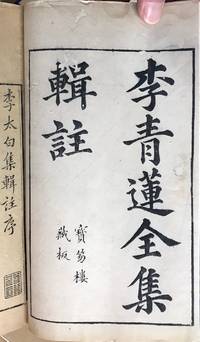 李青蓮全集
輯註
寶笏樓
藏板
李太白集輯註序